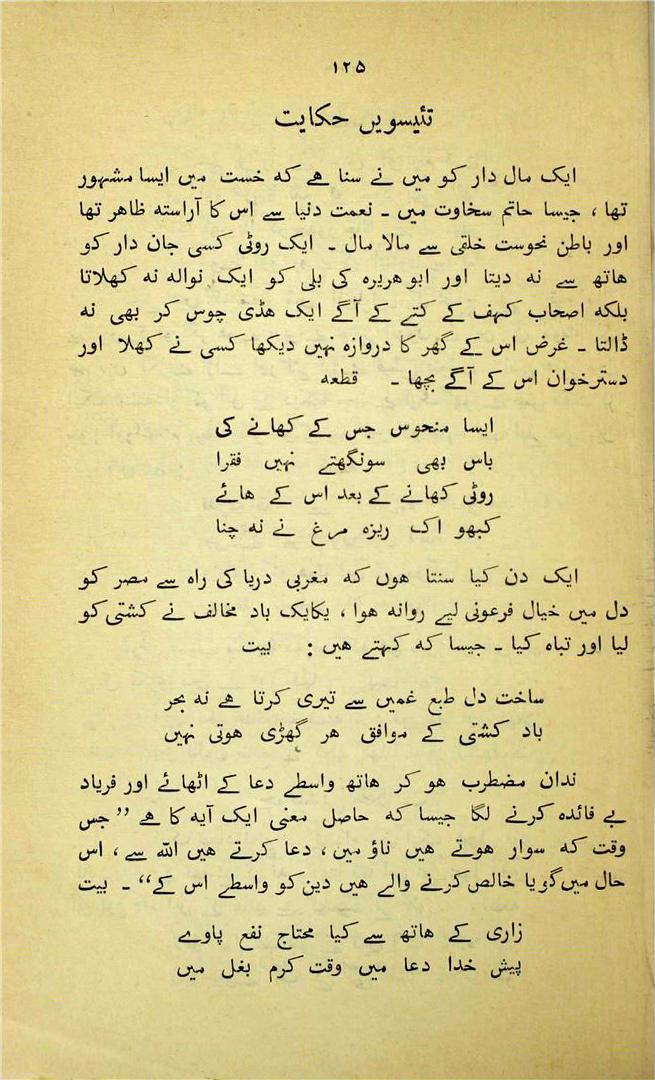 ۱۲۵
تئیسویں حکایت
ایک مال دار کو میں نے سنا ہے کہ خست میں ایسا مشہور
تھا ، جیسا حاتم سخاوت میں ۔ نعمت دنیا سے اس کا آراستہ ظاہر تھا
اور باطن نحوست خلقی سے مالا مال ۔ ایک روٹی کسی جان دار کو
ہاتھ سے نہ دیتا اور ابو ہریرہ کی بلی کو ایک نوالہ نہ کھلاتا
بلکہ اصحاب کہف کے کتے کے آگے ایک ہڈی چوس کر بھی نہ
ڈالتا ۔ غرض اس کے گھر کا دروازہ نہیں دیکھا کسی نے کھلا اور
دسترخوان اس کے آگے بچھا ۔ قطعہ
ایسا منحوس جس کے کھانے کی
باس بھی سونگھتے نہیں فقرا
روٹی کھانے کے بعد اس کے ہائے
کبھو اک ریزہ مرغ نے نہ چنا
ایک دن کیا سنتا ہوں کہ مغربی دریا کی راہ سے مصر کو
دل میں خیال فرعونی لیے روانہ ہوا ، یکایک باد مخالف نے کشتی کو
لیا اور تباہ کیا ۔ جیسا کہ کہتے ہیں : بیت
ساخت دل طبع غمیں سے تیری کرتا ہے نہ بحر
باد کشتی کے موافق ہر گھڑی ہوتی نہیں
ندان مضطرب ہو کر ہاتھ واسطے دعا کے اٹھائے اور فریاد
بے فائدہ کرنے لگا جیسا کہ حاصل معنی ایک آیہ کا ہے ”جس
وقت کہ سوار ہوتے ہیں ناؤ میں ، دعا کرتے ہیں اللہ سے ، اس
حال میں گویا خالص کرنے والے ہیں دین کو واسطے اس کے“ ۔ بیت
زاری کے ہاتھ سے کیا محتاج نفع پاوے
پیش خدا دعا میں وقت کرم بغل میں